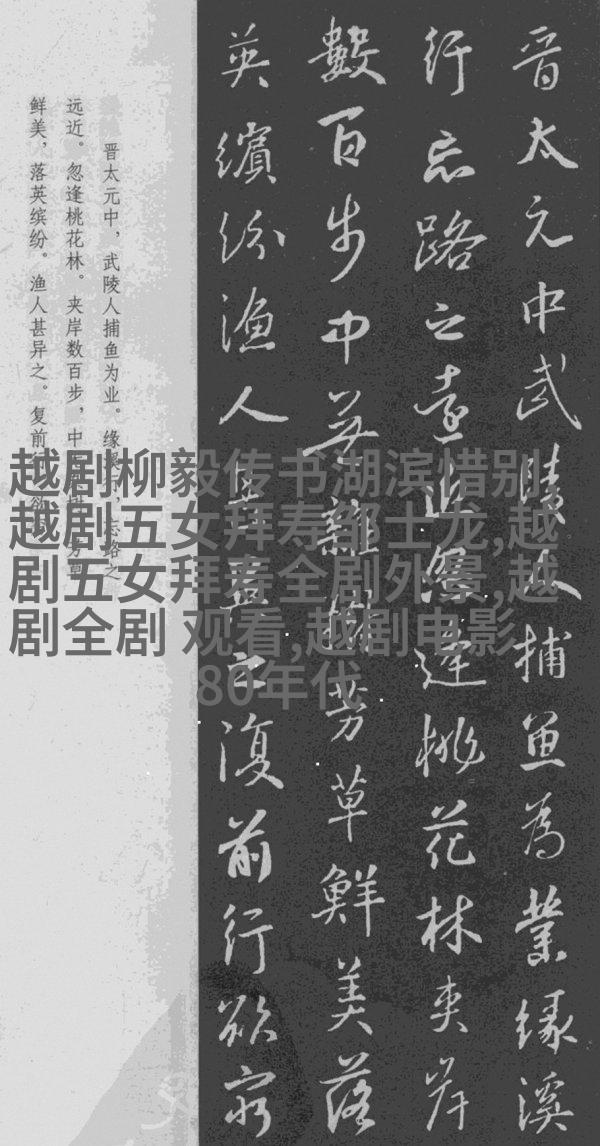 晋太元中武陵人捕魚為業緣溪
行忘路之遠近忽逢桃花林夾岸
數百步中無雜樹芳草鮮美落
英繽紛漁人甚異之復前行欲窮
晋太元中，武陵人捕鱼为业。缘溪行，忘路之
远近。忽逢桃花林。夹岸数百步，中
鲜美，落英缤纷。渔人甚异之。复前
越剧柳毅传书湖滨惜别,
越剧五女拜寿邹士龙,越
剧五女拜寿全剧外景,越
剧全剧 观看,越剧电影
80年代